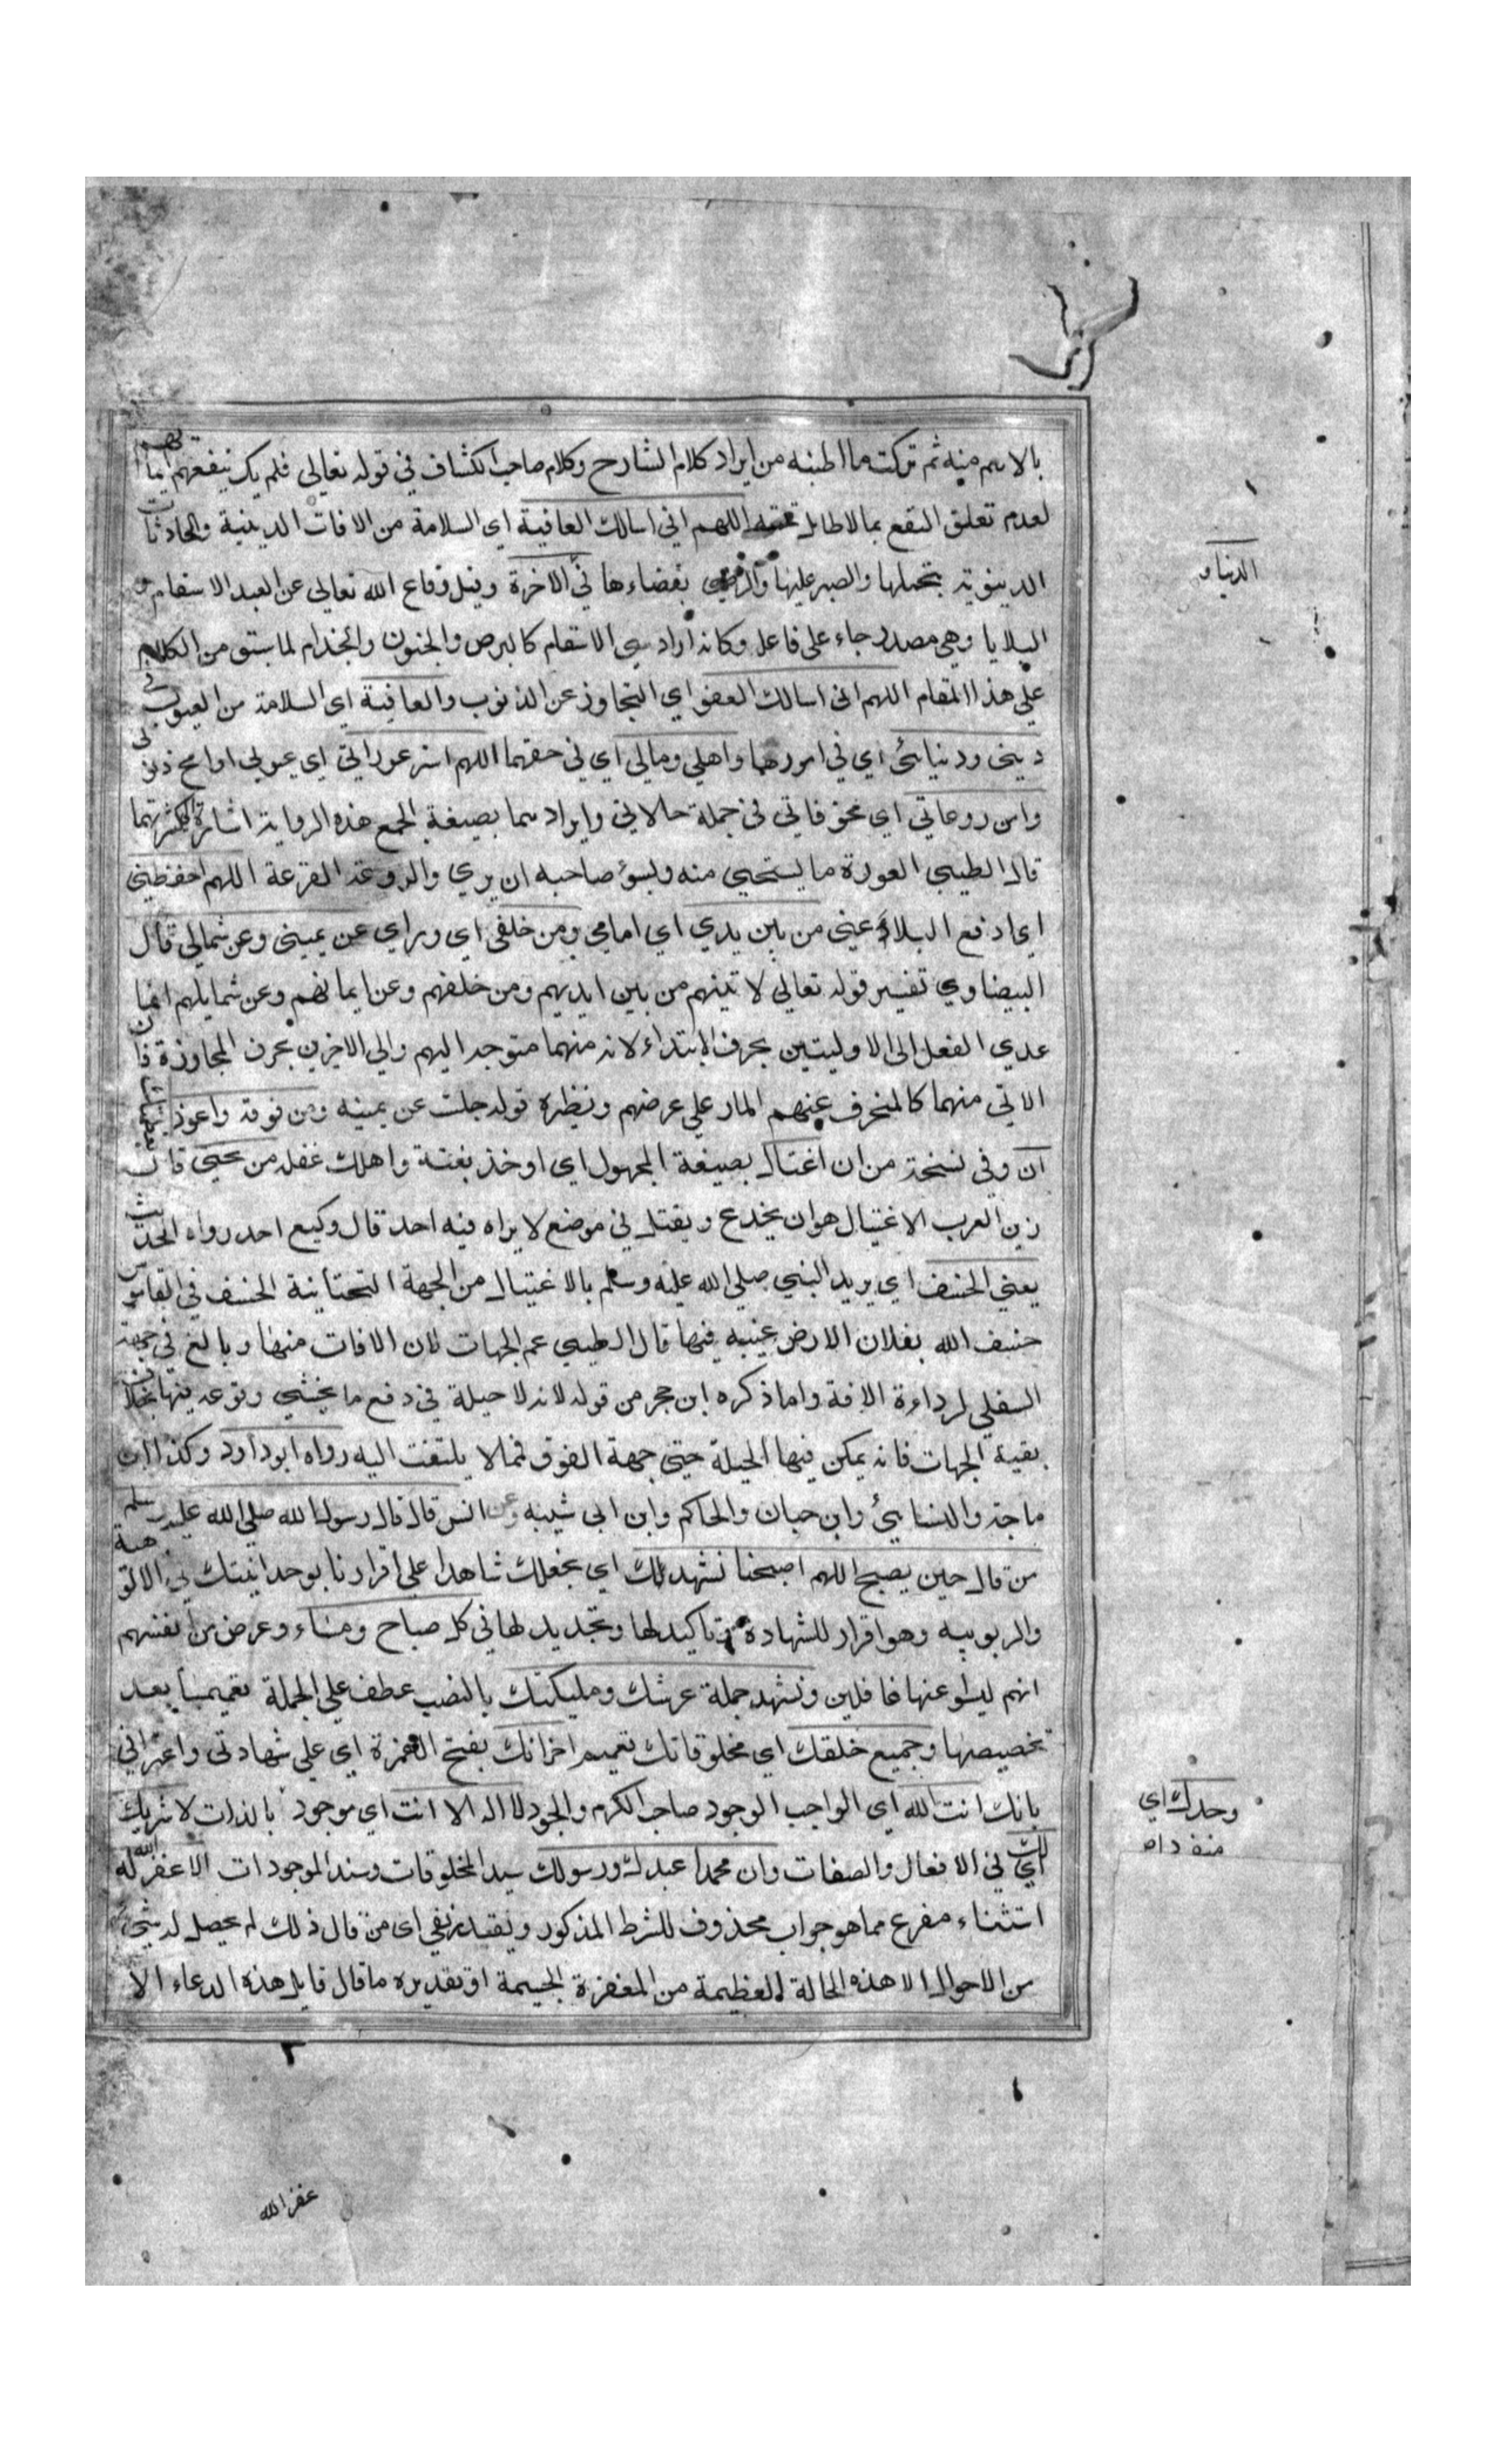 بالاسم منه ثم تركت ما اطنبه من ايراد كلام الشارح وكلام صاحب الكشاف في قوله تعالى فلم يك ينفعهم ايمانهم
لعدم تعلق النفع بما لا طايل تحته اللهم اني اسالك العافية اي السلامة من الافات الدينية والحادثات
الدنيوية بتحملها والصبر عليها والرضى بقضاءها في الاخرة وقيل دفاع الله تعالى عن العبد الاسقام و
البلايا وهي مصدر جاء على فاعلة وكانه اراد سيئ الاسقام كالبرص والجنون والجذام لما سبق من الكلام
على هذا المقام اللهم اني اسالك العفو اي التجاوز عن الذنوب والعافية اي السلامة من العيوب في
ديني ودنيائي اي في امورهما واهلي ومالي اي في حقهما اللهم استر عوراتي اي عيوبي او امح ذنوبي
وامن روعاتي اي مخوفاتي في جملة حالاتي وايرادهما بصيغة الجمع هذه الرواية اشارة لكثرتهما
قال الطيبي العورة ما يستحيى منه ويسؤ صاحبه ان يرى والروعة الفزعة اللهم احفظني
اي ادفع البلاء عني من بين يدي اي امامي ومن خلفي اي وراي عن يميني وعن شمالي قال
البيضاوي تفسير قوله تعالى لاتينهم من بين ايديهم ومن خلفهم وعن ايمانهم وعن شمايلهم انما
عدى الفعل الى الاوليين بحرف الابتداء لانه منهما متوجه اليهم والى الاخرين بحرف المجاوزة فان
الاتي منهما كالمنحرف عنهم المار على عرضهم ونظيره قوله جلست عن يمينه ومن فوقه واعوذ بعظمتك
ان وفي نسخة من ان اغتال بصيغة المجهول اي اوخذ بغتة واهلك غفلة من تحتي قال
زين العرب الاغتيال هو ان يخدع ويقتل في موضع لا يراه فيه احد قال وكيع احد رواه الحديث
يعني الخسف اي يريد النبي صلى الله عليه وسلم بالاغتيال من الجهة التحتانية الخسف في القاموس
خسف الله بفلان الارض غيبه فيها قال الطيبي عم الجهات لان الافات منها وبالغ في جهة
السفلى لرداءة الافة واما ذكره ابن حجر من قوله لانه لا حيلة في دفع ما يخشى وقوعه فيها بخلاف
بقية الجهات فانه يمكن فيها الحيلة حتى جهة الفوق فمما لا يلتفت اليه رواه ابوداود وكذا ابن
ماجة والنسايئ وابن حبان والحاكم وابن ابي شيبه وعن انس قال قال رسول الله صلى الله عليه وسلم
من قال حين يصبح اللهم اصبحنا نشهدك اي نجعلك شاهدا على اقرارنا بوحدانيتك في الالوهية
والربوبيه وهو اقرار للشهادة وتاكيد لها وتجديد لها في كل صباح ومساء وعرض من انفسهم
انهم ليسوا عنها غافلين ونشهد جملة عرشك ومليكتك بالنصب عطف على الجملة تعميما بعد
تخصيصها وجميع خلقك اي مخلوقاتك تعميم اخر انك بفتح الهمزة اي على شهادتي واعترافي
بانك انت الله اي الواجب الوجود صاحب الكرم والجود لا اله الا انت اي موجود بالذات لا شريك
لك اي في الافعال والصفات وان محمدا عبدك ورسولك سيد المخلوقات وسند الموجودات الا غفر الله له
استثناء مفرغ مما هو جواب محذوف للشرط المذكور وتقديره نفي اي من قال ذلك لم يحصل له شيئ
من الاحوال الا هذه الحالة العظيمة من المغفرة الجسيمة او تقديره ما قال قايل هذه الدعاء الا
الدنيا و
وحدك اي
منفردا
غفر الله